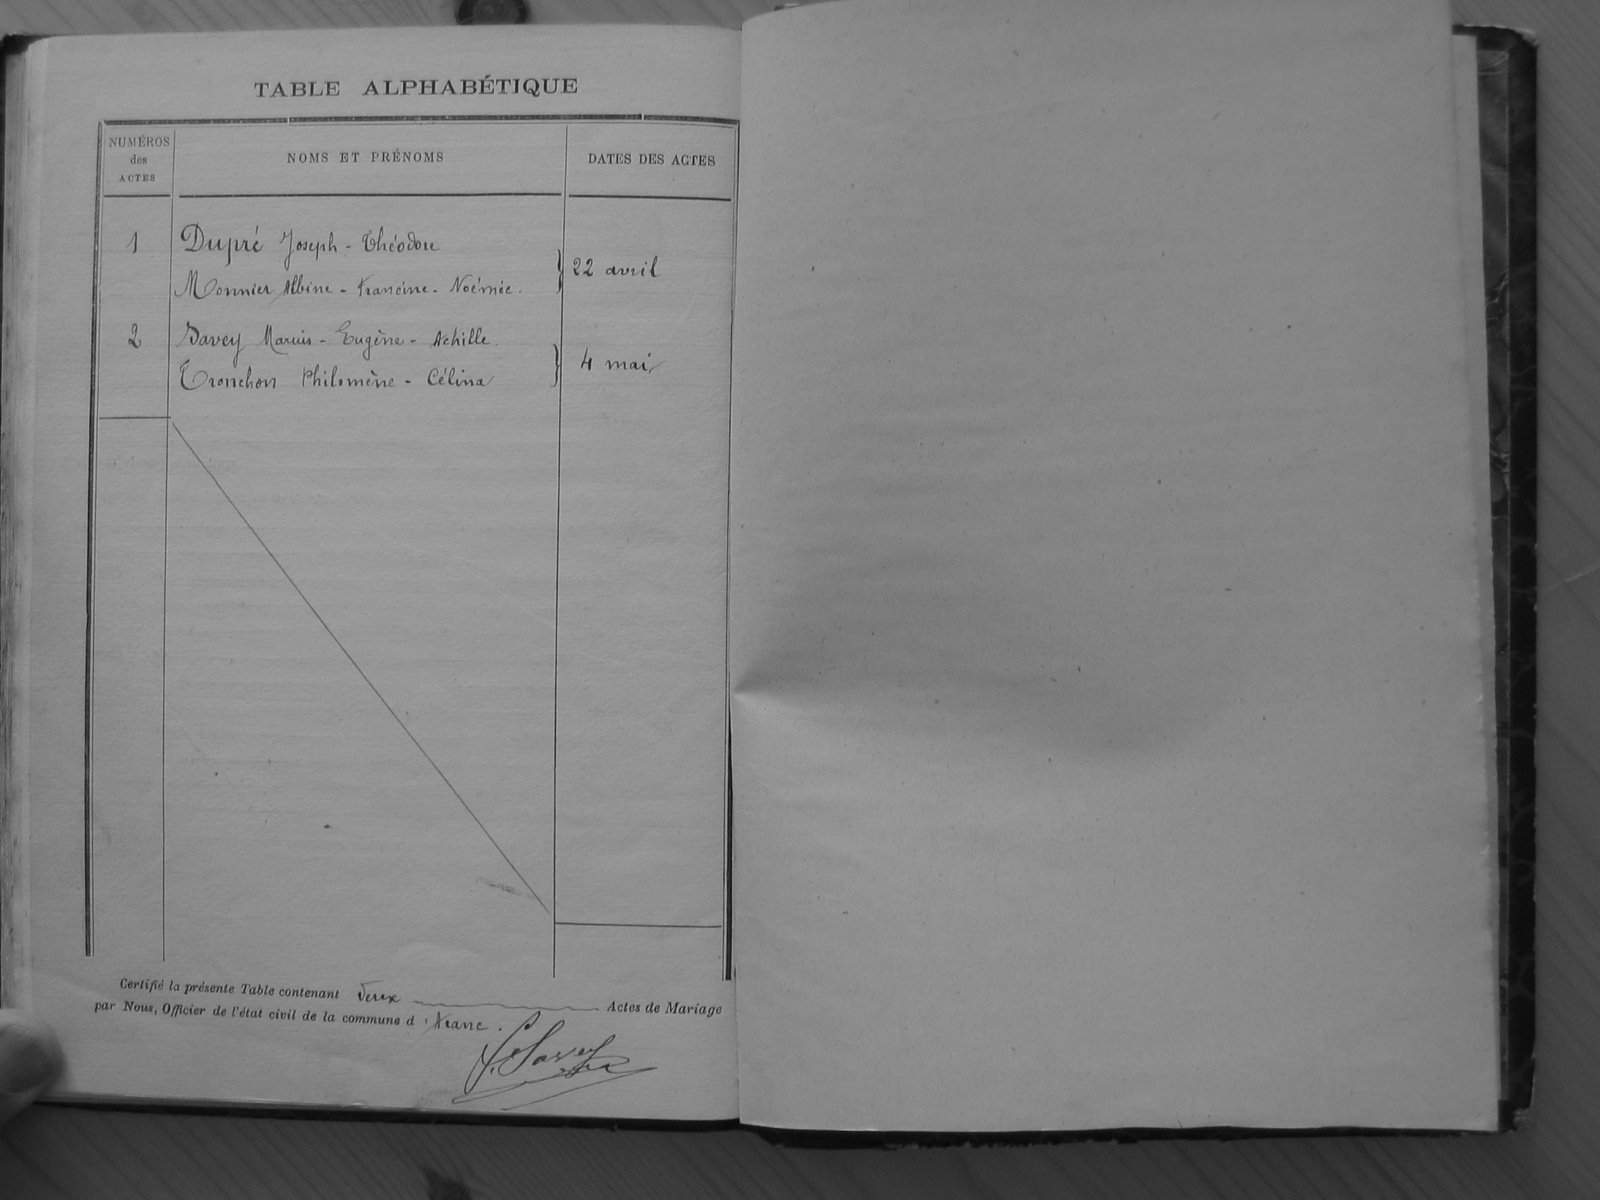 TABLE ALPHABÉTIQUE
NUMÉROS
des
ACTES
NOMS ET PRÉNOMS
DATES DES ACTES
1 Dupré Joseph - Théodore
Monnier Albine - Francine - Noémée.
22 avril
2 Savey Marius - Eugène - Achille.
Tronchon Philomène - Célina
4 mai
Certifié la présente Table contenant deux Actes de Mariage
par Nous, Officier de l'état civil de la commune d
Savey